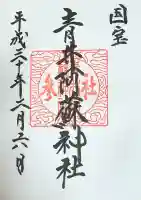 国宝
青井阿蘇神社
平成三十年二月六日